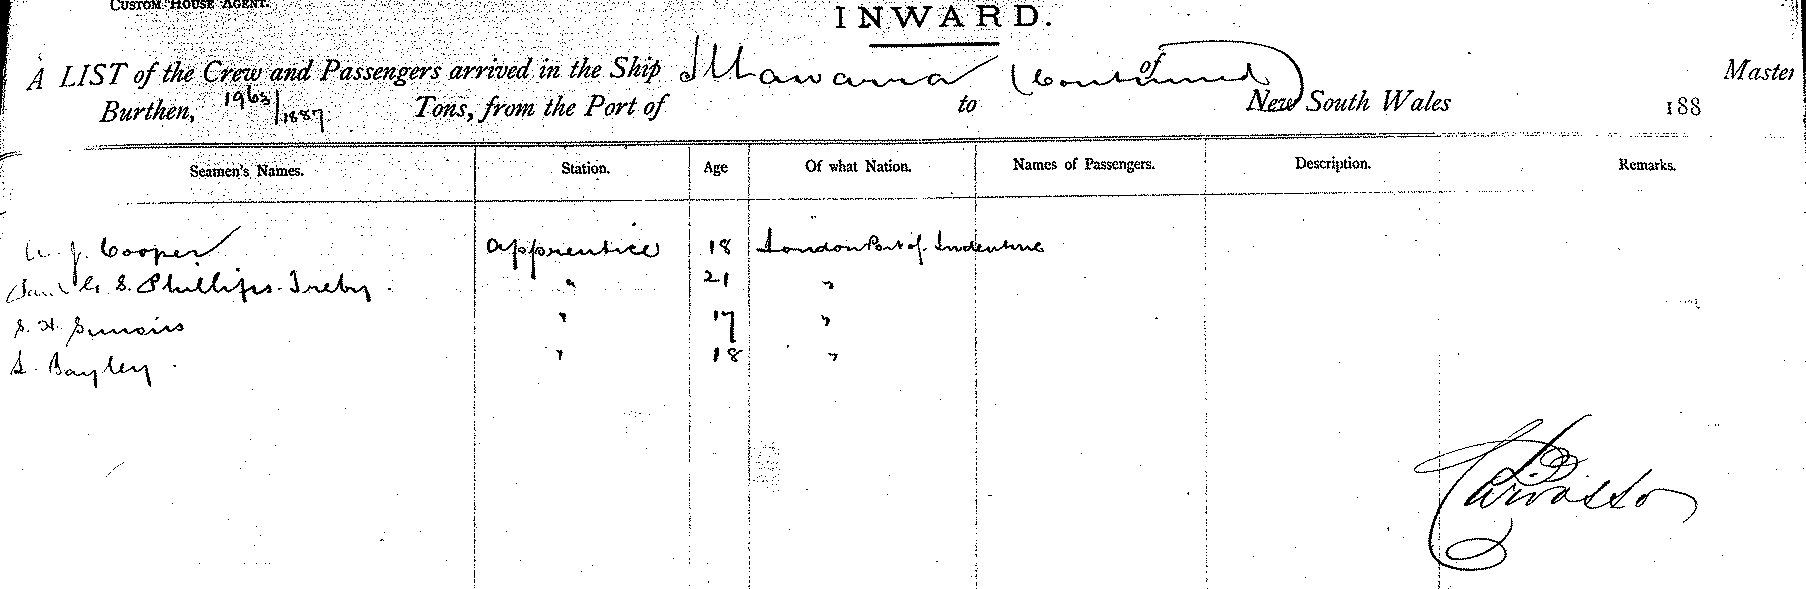 CUSTOM HOUSE AGENT.
INWARD.
A LIST of the Crew and Passengers arrived in the Ship Illawarra (Continued) of Master
Burthen, 1963/1887 Tons, from the Port of to New South Wales 188
Seamen's Names. Station. Age Of what Nation. Names of Passengers. Description. Remarks.
J. Cooper Apprentice 18 London Port of Indenture
G. S. Phillips-Treby. " 21 "
S. H. " 17 "
L. Bayley. " 18 "